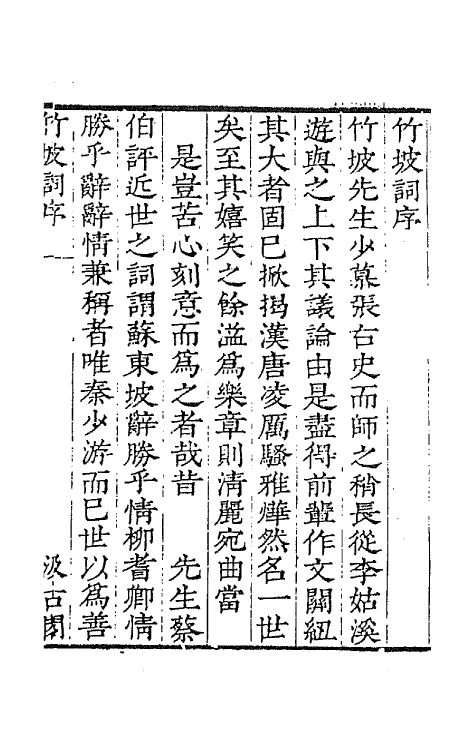 竹坡詞序
竹坡先生少慕張右史而師之稍長從李姑溪
遊與之上下其議論由是盡得前輩作文關紐
其大者固已掀揭漢唐凌厲騷雅燁然名一世
矣至其嬉笑之餘溢爲樂章則淸麗宛曲當
是豈苦心刻意而爲之者哉昔 先生蔡
伯評近世之詞謂蘇東坡辭勝乎情柳耆卿情
勝乎辭辭情兼稱者唯秦少游而已世以爲善
竹坡詞序 一 汲古閣